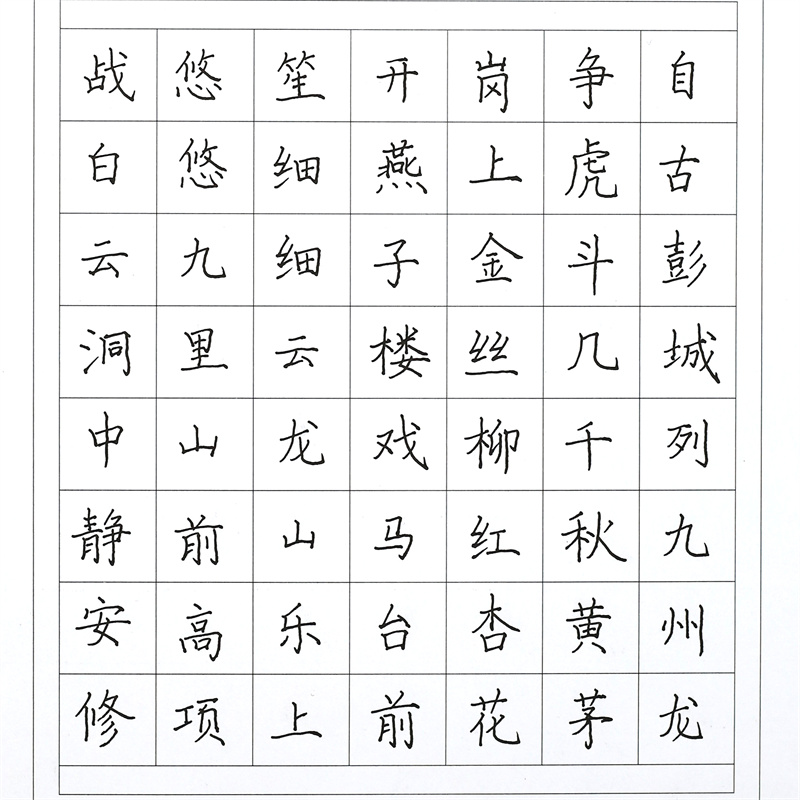 自古彭城列九州龙
争虎斗几千秋黄茅
岗上金丝柳红杏花
开燕子楼戏马台前
笙细细云龙山乐上
悠悠九里山前高项
战白云洞中静安修